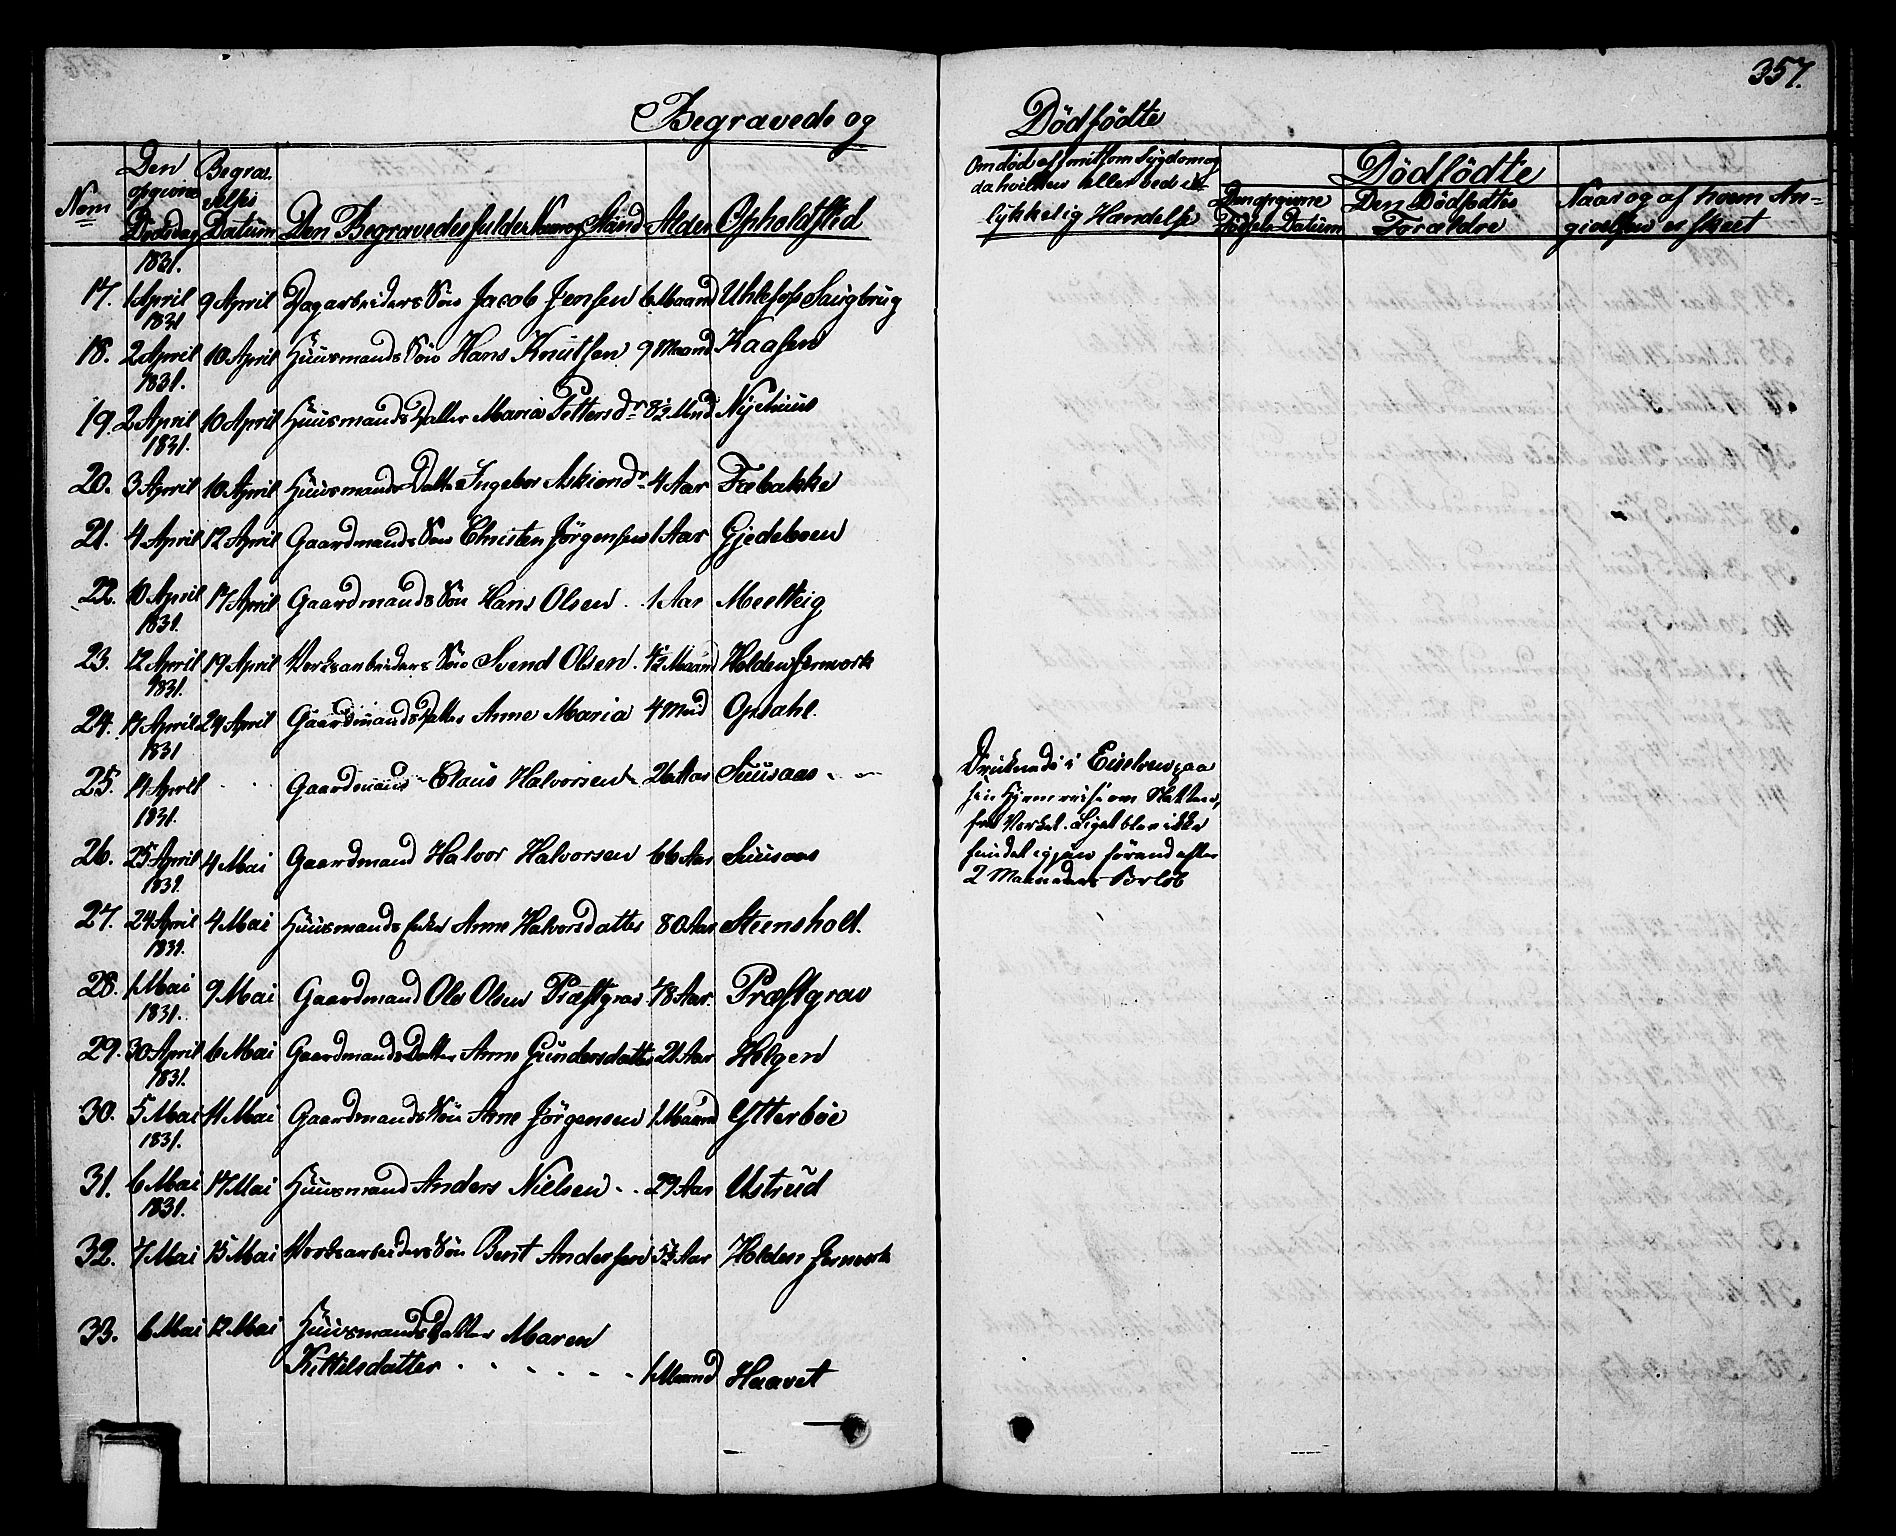 357.
Begravede og Dödfödte
Nom
Den opgivne Dödsdag
Begravelses Datum
Den Begravedes fulde Navn og Stand
Alder
Opholdsted
Om död af smitsom Sygdom og
da hvilken eller ved
lykkelig Handelse
Dödfödte
Den opgivne Födsels Datum
Den Dödfödtes Forældre
Naar og af hvem Angivelsen er skeet
1831.
17. 1 April 9 April Dagarbeiders Sön Jacob Jensen 6 Maand Uhlefos Saugbrug
1831
18. 2 April 10 April Huusmands Sön Hans Knutsen 9 Maand Kaasen
1831.
19. 2 April 10 April Huusmands Datter Maria Pettersdr 8½ Mnd Nyehuus
1831.
20. 3 April 10 April Huusmands Datter Ingebor 4 Aar Fæbakke
21. 4 April 12 April Gaardmands Sön Christen Jörgensen 1 Aar Gjedeboen
22. 10 April 17 April Gaardmands Sön Hans Olsen 1 Aar Meelteig
1831.
23. 12 April 19 April Verksarbeiders Sön Svend Olsen Maand Holden Jernverk
1831.
24. 17 April 24 April Gaardmands Datter Anne Maria 4 Mnd Opdahl.
1831
25. 14 April Gaardmand Claus Halvorsen 26 Aar Suusaas
1831.
Druknede i Eiselven paa
sin Hjemreise om Natten,
fra Verket. Liget blev ikke
fundet igjen förend efter
2 Maaneders Forlöb
26. 25 April 4 Mai Gaardmand Halvor Halvorsen 66 Aar Suusaas
1831.
27. 24 April 4 Mai Huusmands Enke Anne Halvorsdatter 80 Aar Steenshold.
1831.
28. 1 Mai 9 Mai Gaardmand Ole Olsen Præstgrav 48 Aar. Præstgrav
1831.
29. 30 April 6 Mai Gaardmands Datter Anne Gundersdatter 21 Aar Helgen
1831.
30. 5 Mai 11 Mai Gaardmands Sön Arne Jörgensen 1 Maand Ytterböe
1831.
31. 6 Mai 17 Mai Huusmand Anders Nielsen 29 Aar Ustrud
1831.
32. 7 Mai 15 Mai Verksarbeiders Sön Bent Andersen 5½ Aar Holden Jernverk
33. 6 Mai 12 Mai Huusmands Datter Maren
Kittilsdatter 1 Maand Haavet